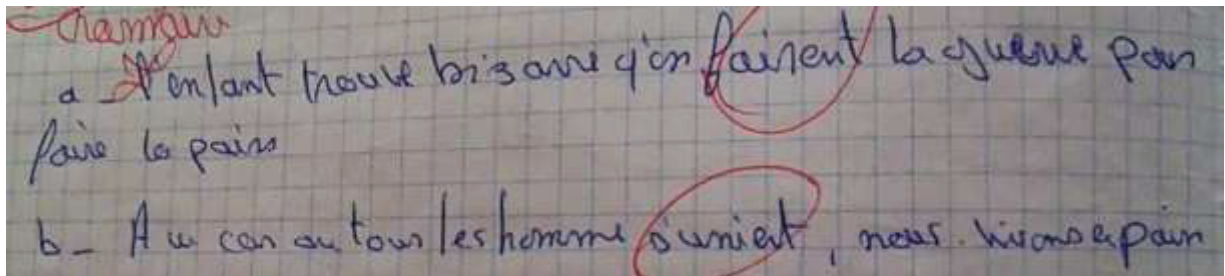 Grammaire
a - L'enfant trouve bizarre q'on fairent la guerre pour
faire la paix
b - Au cas ou tous les homme s'unient, nous vivons